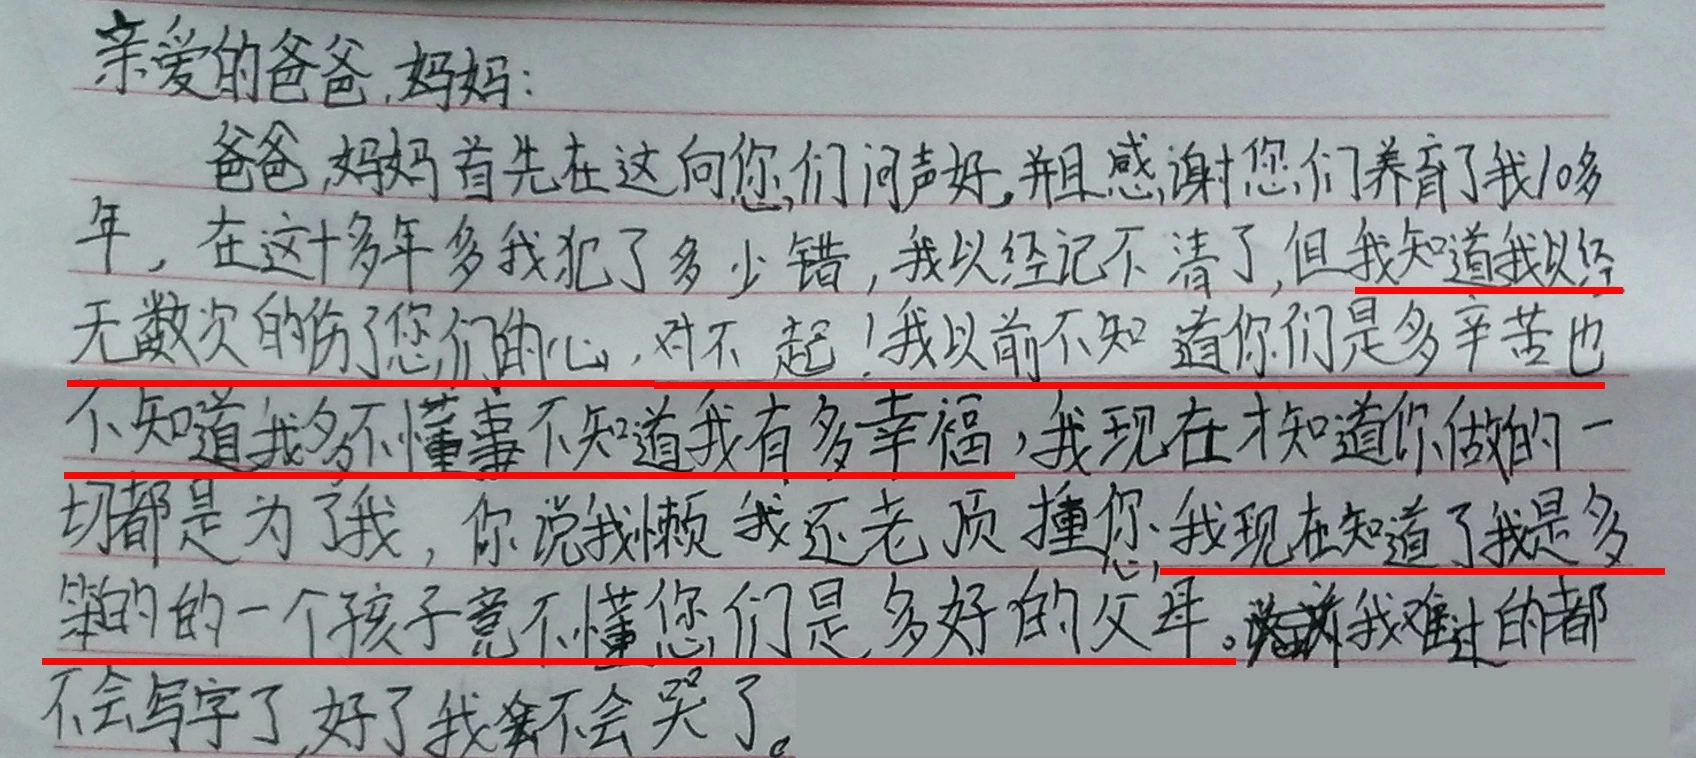 亲爱的爸爸,妈妈:
爸爸,妈妈首先在这向您们问声好,并且感谢您们养育了我10多
年,在这十多年多我犯了多少错,我以经记不清了,但我知道我以经
无数次的伤了您们的心,对不起!我以前不知道你们是多辛苦也
不知道我多不懂事不知道我有多幸福,我现在才知道你做的一
切都是为了我,你说我懒我还老顶撞您,我现在知道了我是多
笨的的一个孩子竟不懂您们是多好的父母。我难过的都
不会写字了,好了我不会哭了。